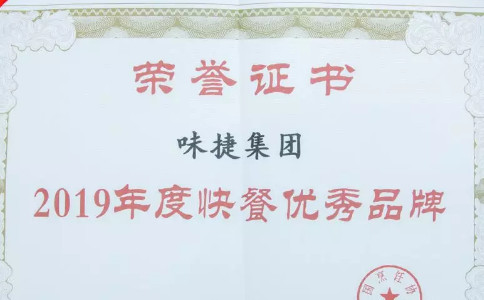 荣誉证书
味捷集团
2019年度快餐优秀品牌
国烹饪协